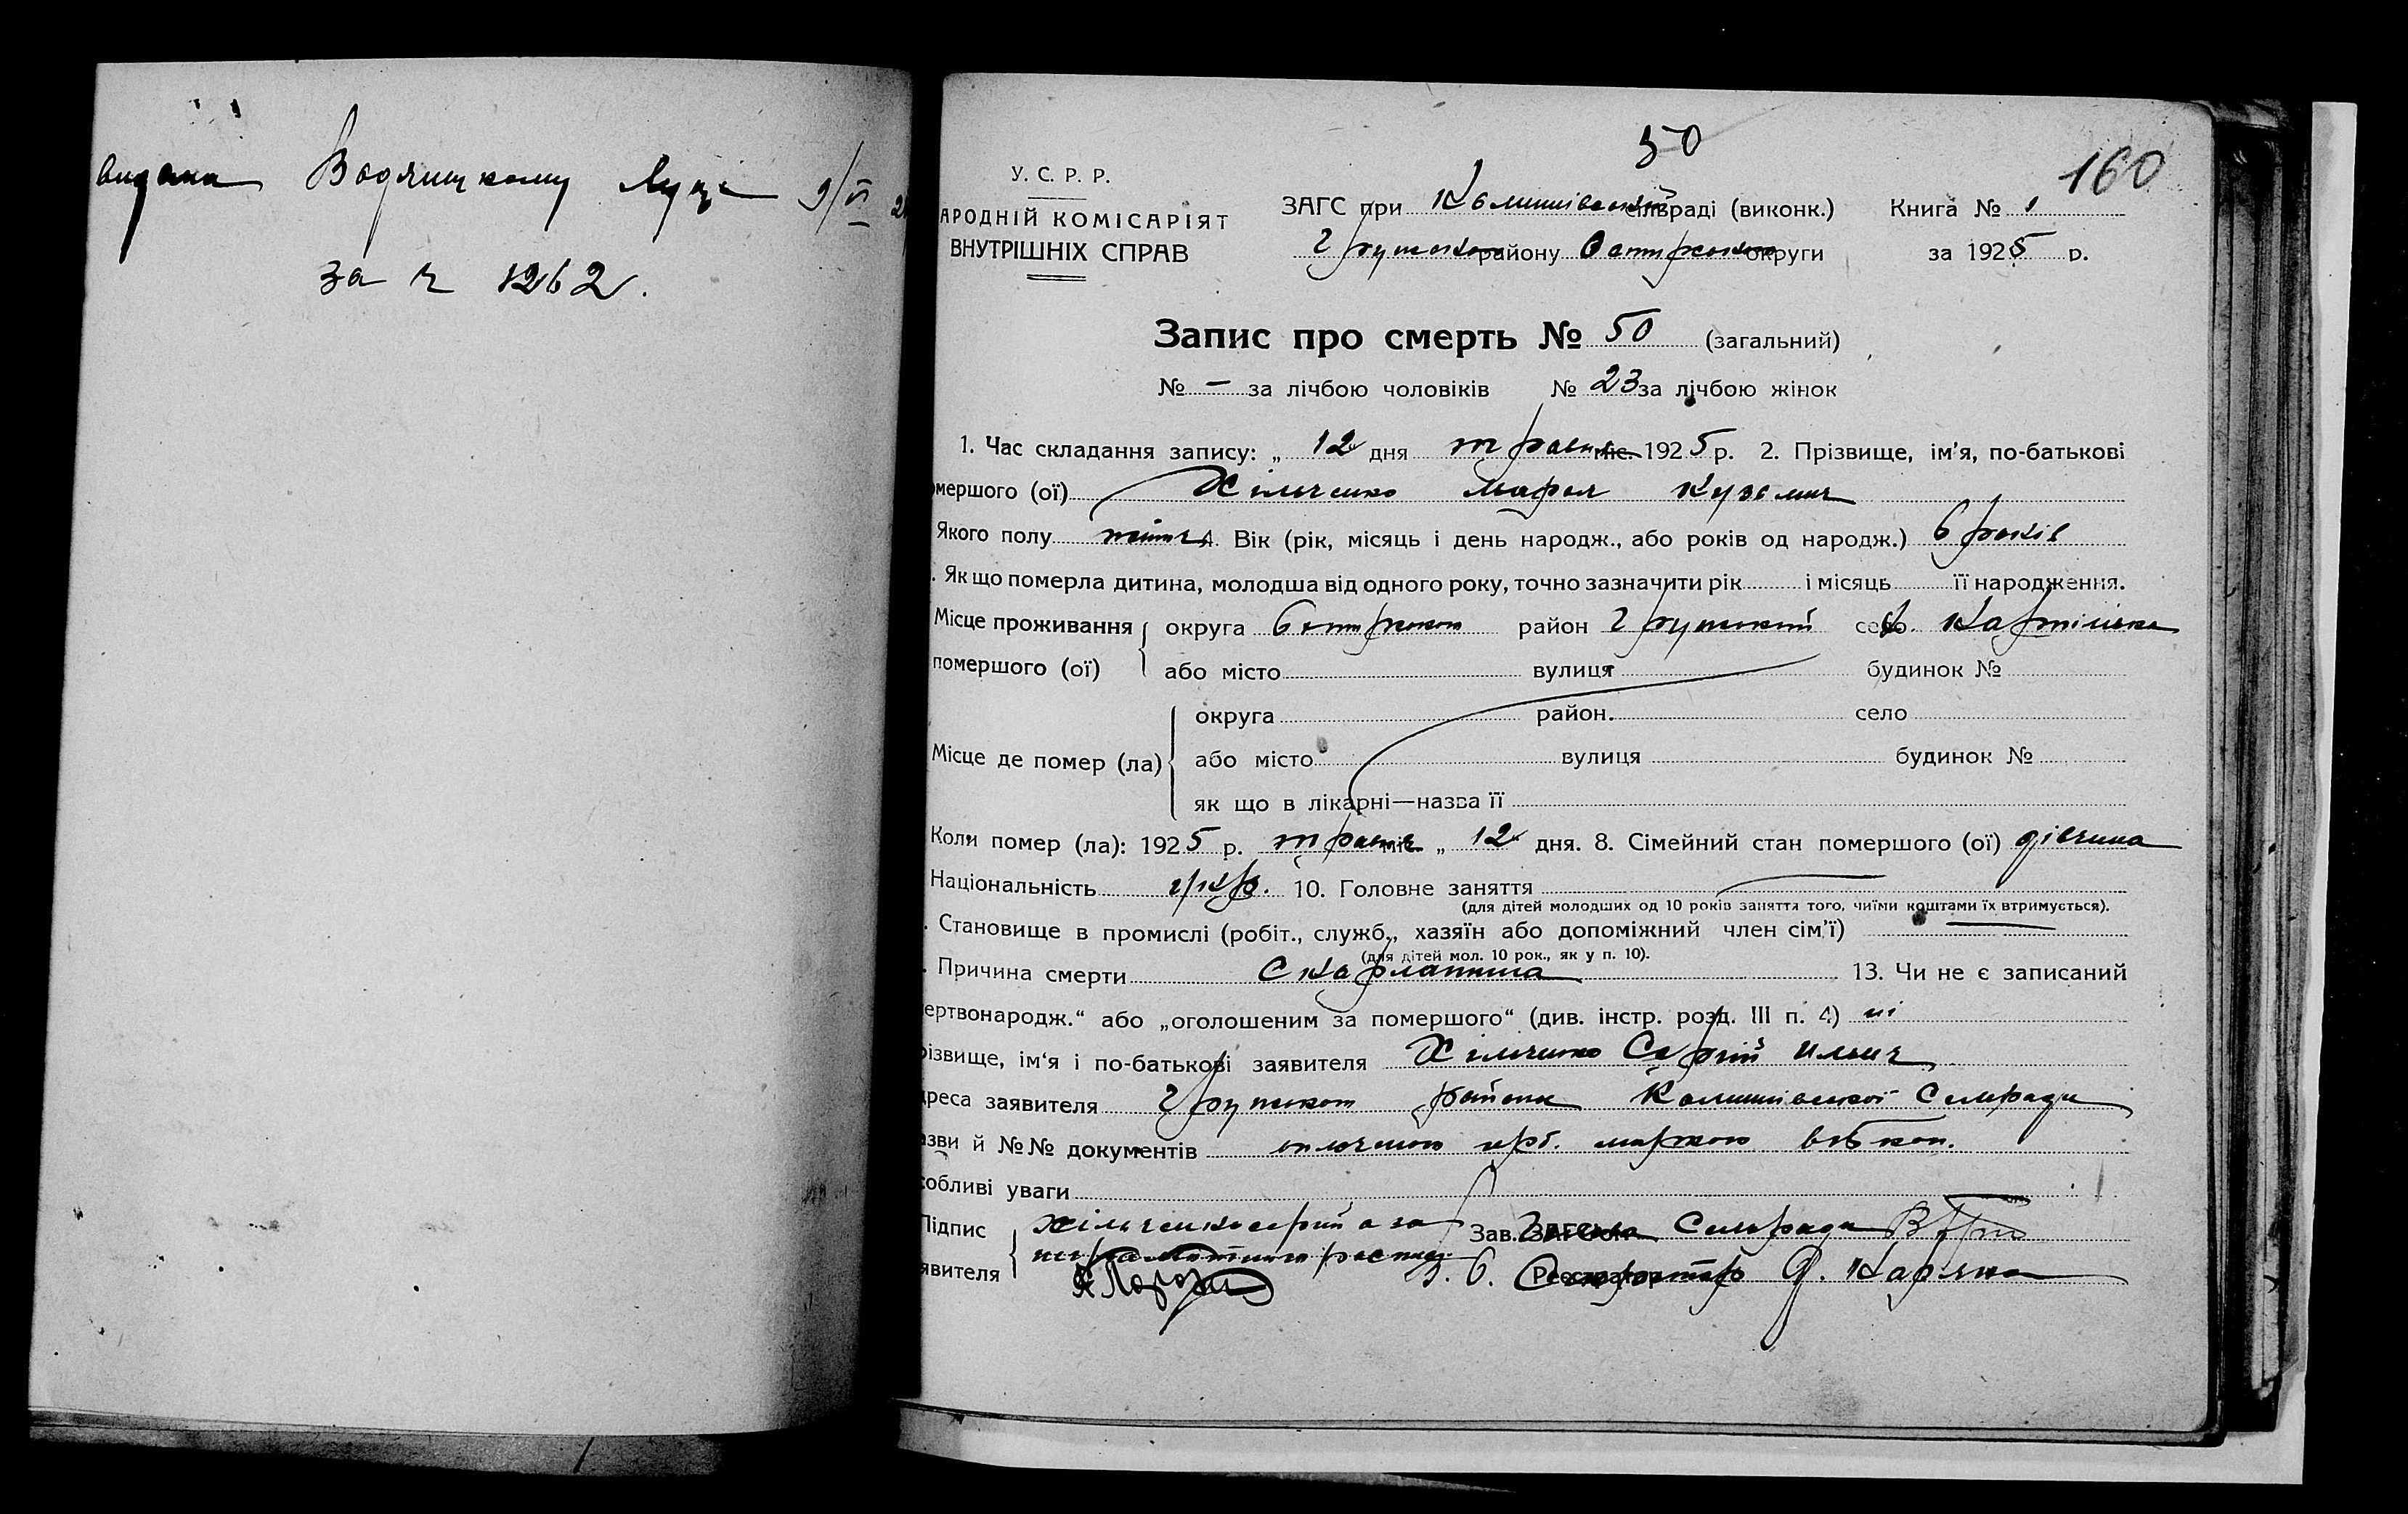 видана Водяницкому Луці 9/VI
за ч 1262.
50
160
У. С. Р. Р.
АРОДНІЙ КОМІСАРІЯТ
ВНУТРІШНІХ СПРАВ
ЗАГС при сільраді (виконк.) Книга № 1
Грунського району округи за 1925 р.
Запис про смерть № 50 (загальний)
№ — за лічбою чоловіків № 23 за лічбою жінок
1. Час складання запису: „ 12 дня травня міс. 1925 р. 2. Прізвище, ім'я, по-батькові
мершого (ої) Хільченко Марфа
Якого полу 4. Вік (рік, місяць і день народж., або років од народж.) 6 років
. Як що померла дитина, молодша від одного року, точно зазначити рік і місяць її народження.
Місце проживання округа район Грунський село
помершого (ої) або місто вулиця будинок №
округа район. село
Місце де помер (ла) або місто вулиця будинок №
як що в лікарні—назва її
Коли помер (ла): 1925 р. травня міс. „ 12 дня. 8. Сімейний стан помершого (ої) дівчина
Національність укр. 10. Головне заняття
(для дітей молодших од 10 років заняття того, чиїми коштами їх втримується).
. Становище в промислі (робіт., служб., хазяїн або допоміжний член сім'ї)
(для дітей мол. 10 рок., як у п. 10).
. Причина смерти Скарлатина 13. Чи не є записаний
ертвонародж.“ або „оголошеним за помершого“ (див. інстр. розд. III п. 4) ні
різвище, ім'я і по-батькові заявителя Хільченко Сергій Ильич
дреса заявителя Грунського района Сельради
азви й №№ документів
собливі уваги
Підпис Зав. ЗАГС'ом Сельради
явителя Реєстратор